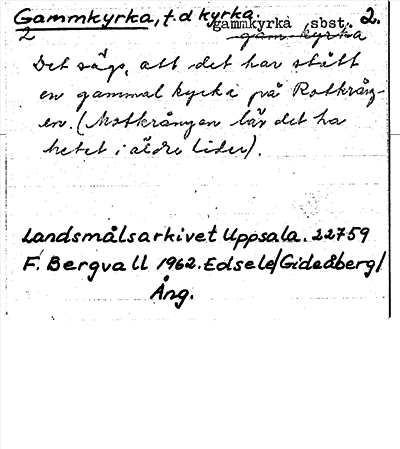 Gammkyrka, t.d kyrka. gammkyrka, sbst. 2.
2 gam kyrka
Det sägs, att det har stått
en gammal kyrka på Rotkrång-
en. (Motkrången lär det ha
hetet i äldre tider).
Landsmålsarkivet Uppsala. 22759
F. Bergvall 1962. Edsele/Gideåberg/
Ång.